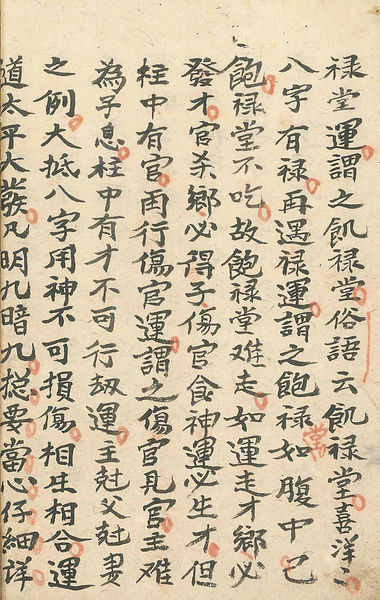 禄堂運謂之飢禄堂俗語云飢禄堂喜洋〻
八字有禄再遇禄運謂之飽禄如腹中已
飽禄堂不吃故飽禄堂难走如運走才鄉必
發才官杀鄉必得子傷官食神運必生才但
柱中有官而行傷官運謂之傷官見官主难
為子息柱中有才不可行刼運主尅父尅妻
之例大抵八字用神不可損傷相生相合運
道太平大發凡明九暗九揔要當心仔細詳